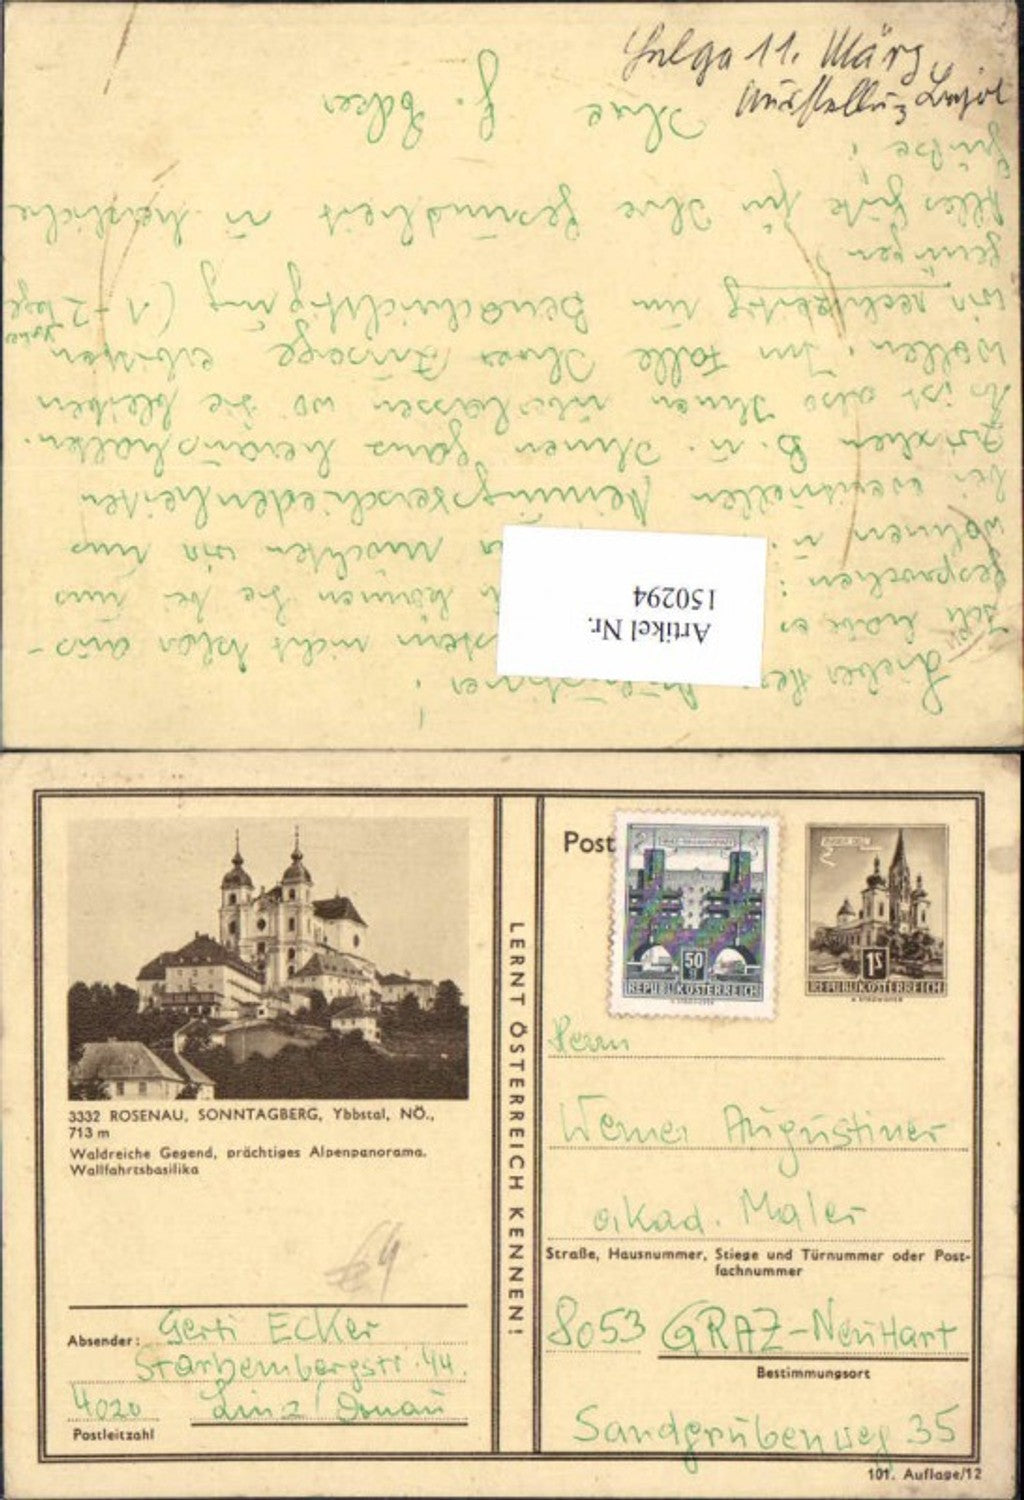 Helga 11. März
Ausstellung
Lieber Herr
Ich habe es nicht klar aus-
gesprochen: können Sie bei uns
wohnen u. möchten wir uns
bei eventuellen Meinungsverschiedenheiten
zwischen B. u. Ihnen ganz heraushalten.
Es ist also Ihnen überlassen wo Sie bleiben
wollen. Im Falle Ihrer Zusage erbitten
wir rechtzeitig um Benachrichtigung (1-2 Tage
genügen)
Alles Gute für Ihre Gesundheit u. herzliche
Grüße!
Ihre G. Ecker
Artikel Nr.
150294
3332 ROSENAU, SONNTAGBERG, Ybbstal, NÖ.,
713 m
Waldreiche Gegend, prächtiges Alpenpanorama.
Wallfahrtsbasilika
Absender: Gerti Ecker
Starhembergstr. 44.
4020 Linz/Donau
Postleitzahl
LERNT ÖSTERREICH KENNEN!
Post
50
REPUBLIK ÖSTERREICH
1S
REPUBLIK ÖSTERREICH
Herrn
Werner Augustiner
akad. Maler
Straße, Hausnummer, Stiege und Türnummer oder Post-
fachnummer
8053 GRAZ-Neuhart
Bestimmungsort
Sandgrubenweg 35
101. Auflage/12